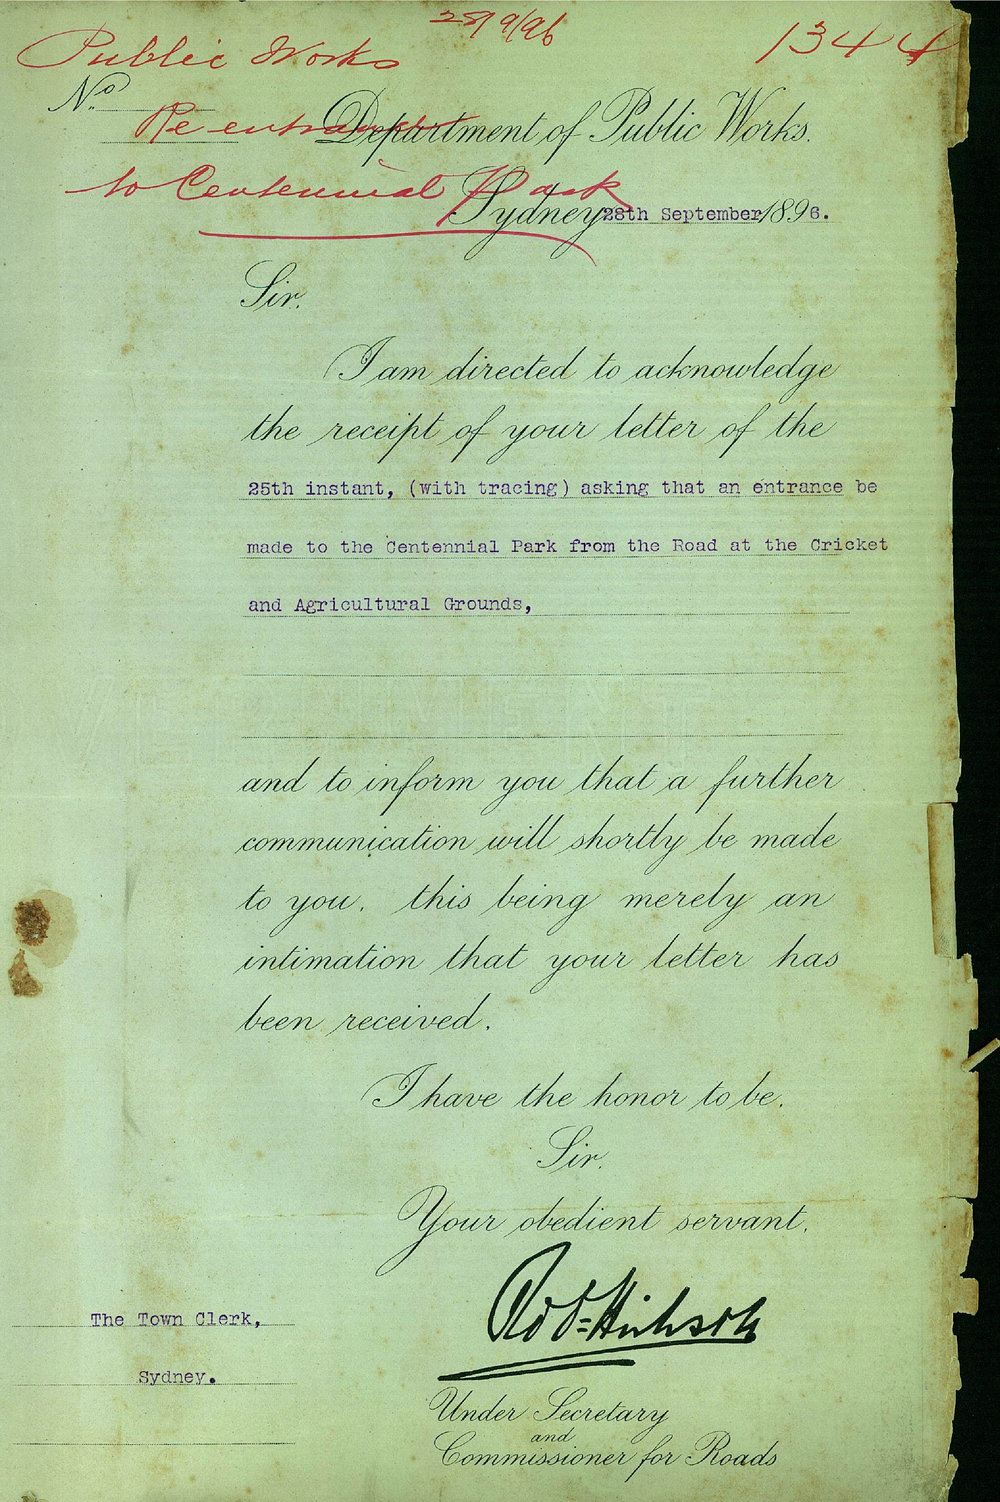 28/9/96
Public Works
1344
No.
Department of Public Works.
Re entrance
to Centennial Park
Sydney 28th September 1896.
Sir,
I am directed to acknowledge
the receipt of your letter of the
25th instant, (with tracing) asking that an entrance be
made to the Centennial Park from the Road at the Cricket
and Agricultural Grounds,
and to inform you that a further
communication will shortly be made
to you, this being merely an
intimation that your letter has
been received.
I have the honor to be,
Sir,
Your obedient servant,
The Town Clerk,
Sydney.
Under Secretary
and
Commissioner for Roads